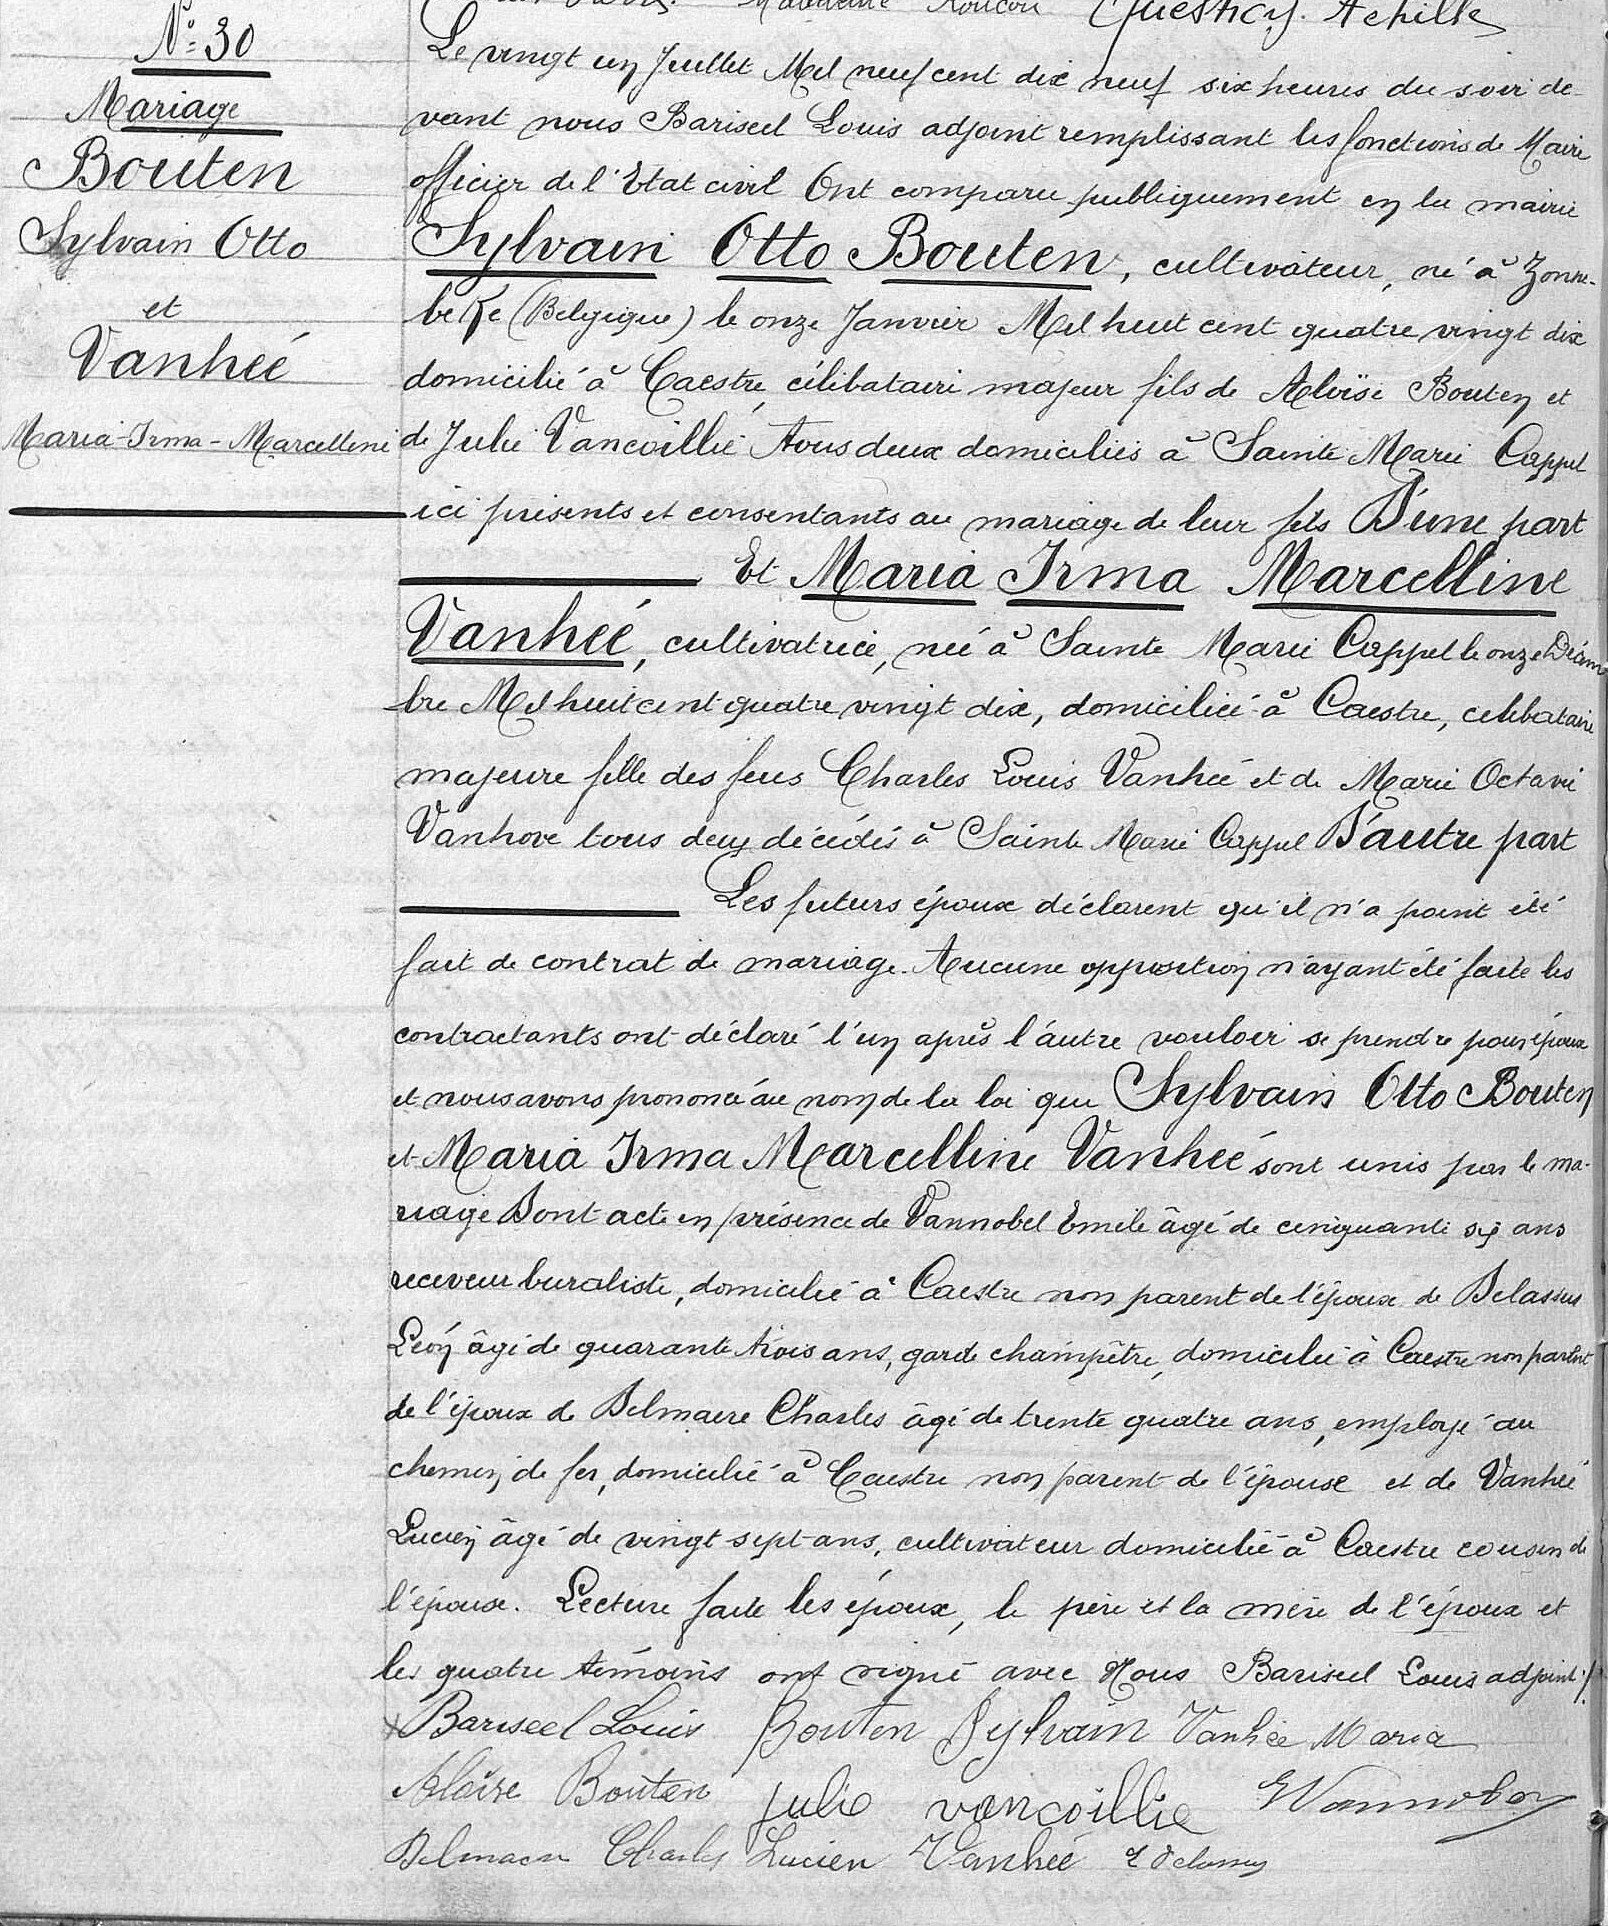 Madeleine Questroy. Achille
N° 30
Mariage
Bouten
Sylvain Otto
et
Vanheé
Maria-Irma-Marcelline
Le vingt un Juillet Mil neuf cent dix neuf six heures du soir de-
vant nous Bariseel Louis adjoint remplissant les fonctions de Maire
officier de l'Etat civil Ont comparu publiquement en la mairie
Sylvain Otto Bouten, cultivateur, né à Zonne-
beke (Belgique) le onze Janvier Mil huit cent quatre vingt dix
domicilié à Caestre, célibataire majeur fils de Aloïse Bouten et
de Julie Vancoillie Tous deux domiciliés à Sainte Marie Cappel
ici présents et consentants au mariage de leur fils D'une part
Et Maria Irma Marcelline
Vanheé, cultivatrice, née à Sainte Marie Cappel le onze Décem
bre Mil huit cent quatre vingt dix, domiciliée à Caestre, célibataire
majeure fille des feus Charles Louis Vanheé et de Marie Octavie
Vanhove tous deux décédés à Sainte Marie Cappel D'autre part
Les futurs époux déclarent qu'il n'a point été
fait de contrat de mariage. Aucune opposition n'ayant été faite les
contractants ont déclaré l'un après l'autre vouloir se prendre pour époux
et nous avons prononcé au nom de la loi que Sylvain Otto Bouten
et Maria Irma Marcelline Vanheé sont unis par le ma-
riage Dont acte en présence de Vannobel Emile âgé de cinquante six ans
receveur buraliste, domicilié à Caestre non parent de l'époux de Delassus
Léon âgé de quarante trois ans, garde champêtre, domicilié à Caestre non parent
de l'époux de Delmaere Charles âgé de trente quatre ans, employé au
chemin de fer, domicilié à Caestre non parent de l'épouse et de Vanheé
Lucien âgé de vingt sept ans, cultivateur domicilié à Caestre cousin de
l'épouse. Lecture faite les époux, le père et la mère de l'époux et
les quatre témoins ont signé avec Nous Bariseel Louis adjoint ./.
Bariseel Louis Bouten Sylvain Vanhée Maria
Aloïse Bouten julie vancoillie E Vannobel
Delmaere Charles Lucien Vanheé L Delassus